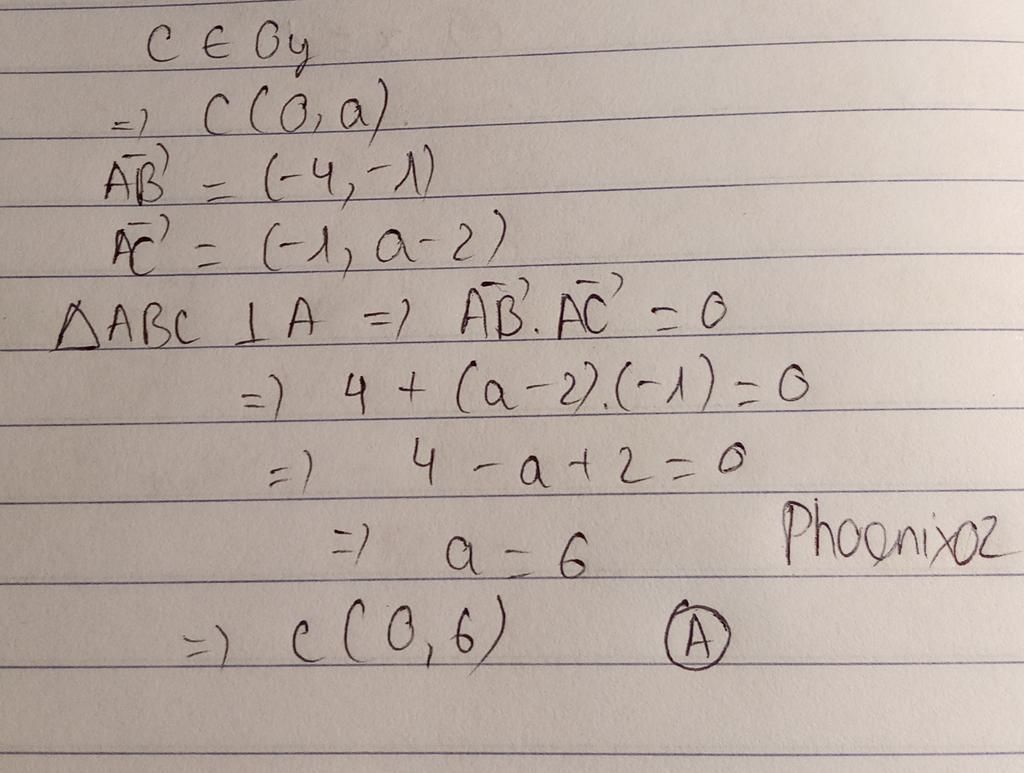 C ∈ Oy
=> C(0,a)
AB→ = (-4,-1)
AC→ = (-1, a-2)
ΔABC ⊥ A => AB→.AC→ = 0
=> 4 + (a-2).(-1) = 0
=> 4 - a + 2 = 0
=> a = 6 Phoenix02
=> C(0,6) Ⓐ